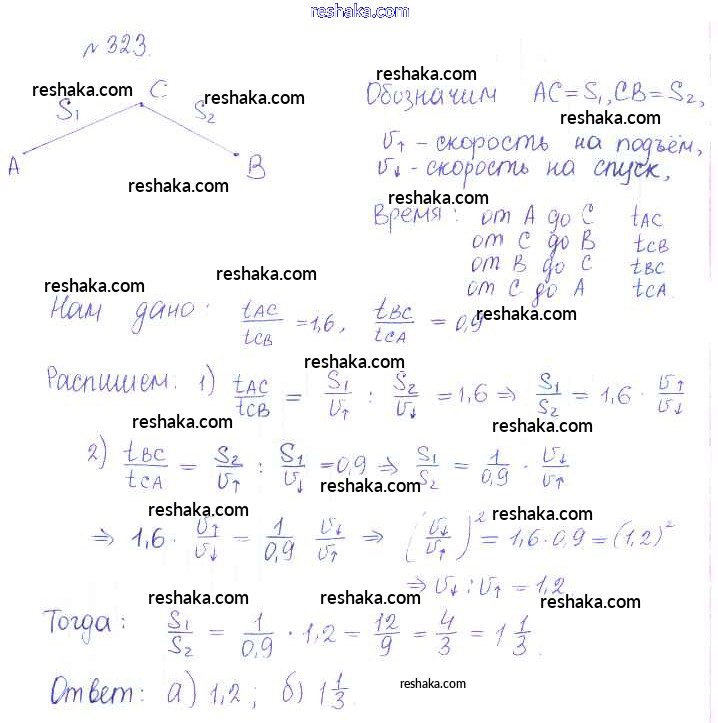 reshaka.com
№323.
reshaka.com
C
S₁
S₂
reshaka.com
A
B
reshaka.com
Обозначим AC=S₁, CB=S₂,
reshaka.com
v↑ - скорость на подъём,
v↓ - скорость на спуск,
reshaka.com
Время: от A до C tAC
от C до B tCB
от B до C tBC
от C до A tCA.
reshaka.com
reshaka.com
Нам дано: tAC/tCB = 1,6, tBC/tCA = 0,9
reshaka.com
Распишем: 1) tAC/tCB = S₁/v↑ : S₂/v↓ = 1,6 ⇒ S₁/S₂ = 1,6 · v↑/v↓
reshaka.com
reshaka.com
2) tBC/tCA = S₂/v↑ : S₁/v↓ = 0,9 ⇒ S₁/S₂ = 1/0,9 · v↓/v↑
reshaka.com
reshaka.com
reshaka.com
⇒ 1,6 · v↑/v↓ = 1/0,9 v↓/v↑ ⇒ (v↓/v↑)² = 1,6·0,9 = (1,2)²
⇒ v↓ : v↑ = 1,2
reshaka.com
reshaka.com
reshaka.com
Тогда: S₁/S₂ = 1/0,9 · 1,2 = 12/9 = 4/3 = 1 1/3.
reshaka.com
Ответ: а) 1,2; б) 1 1/3.